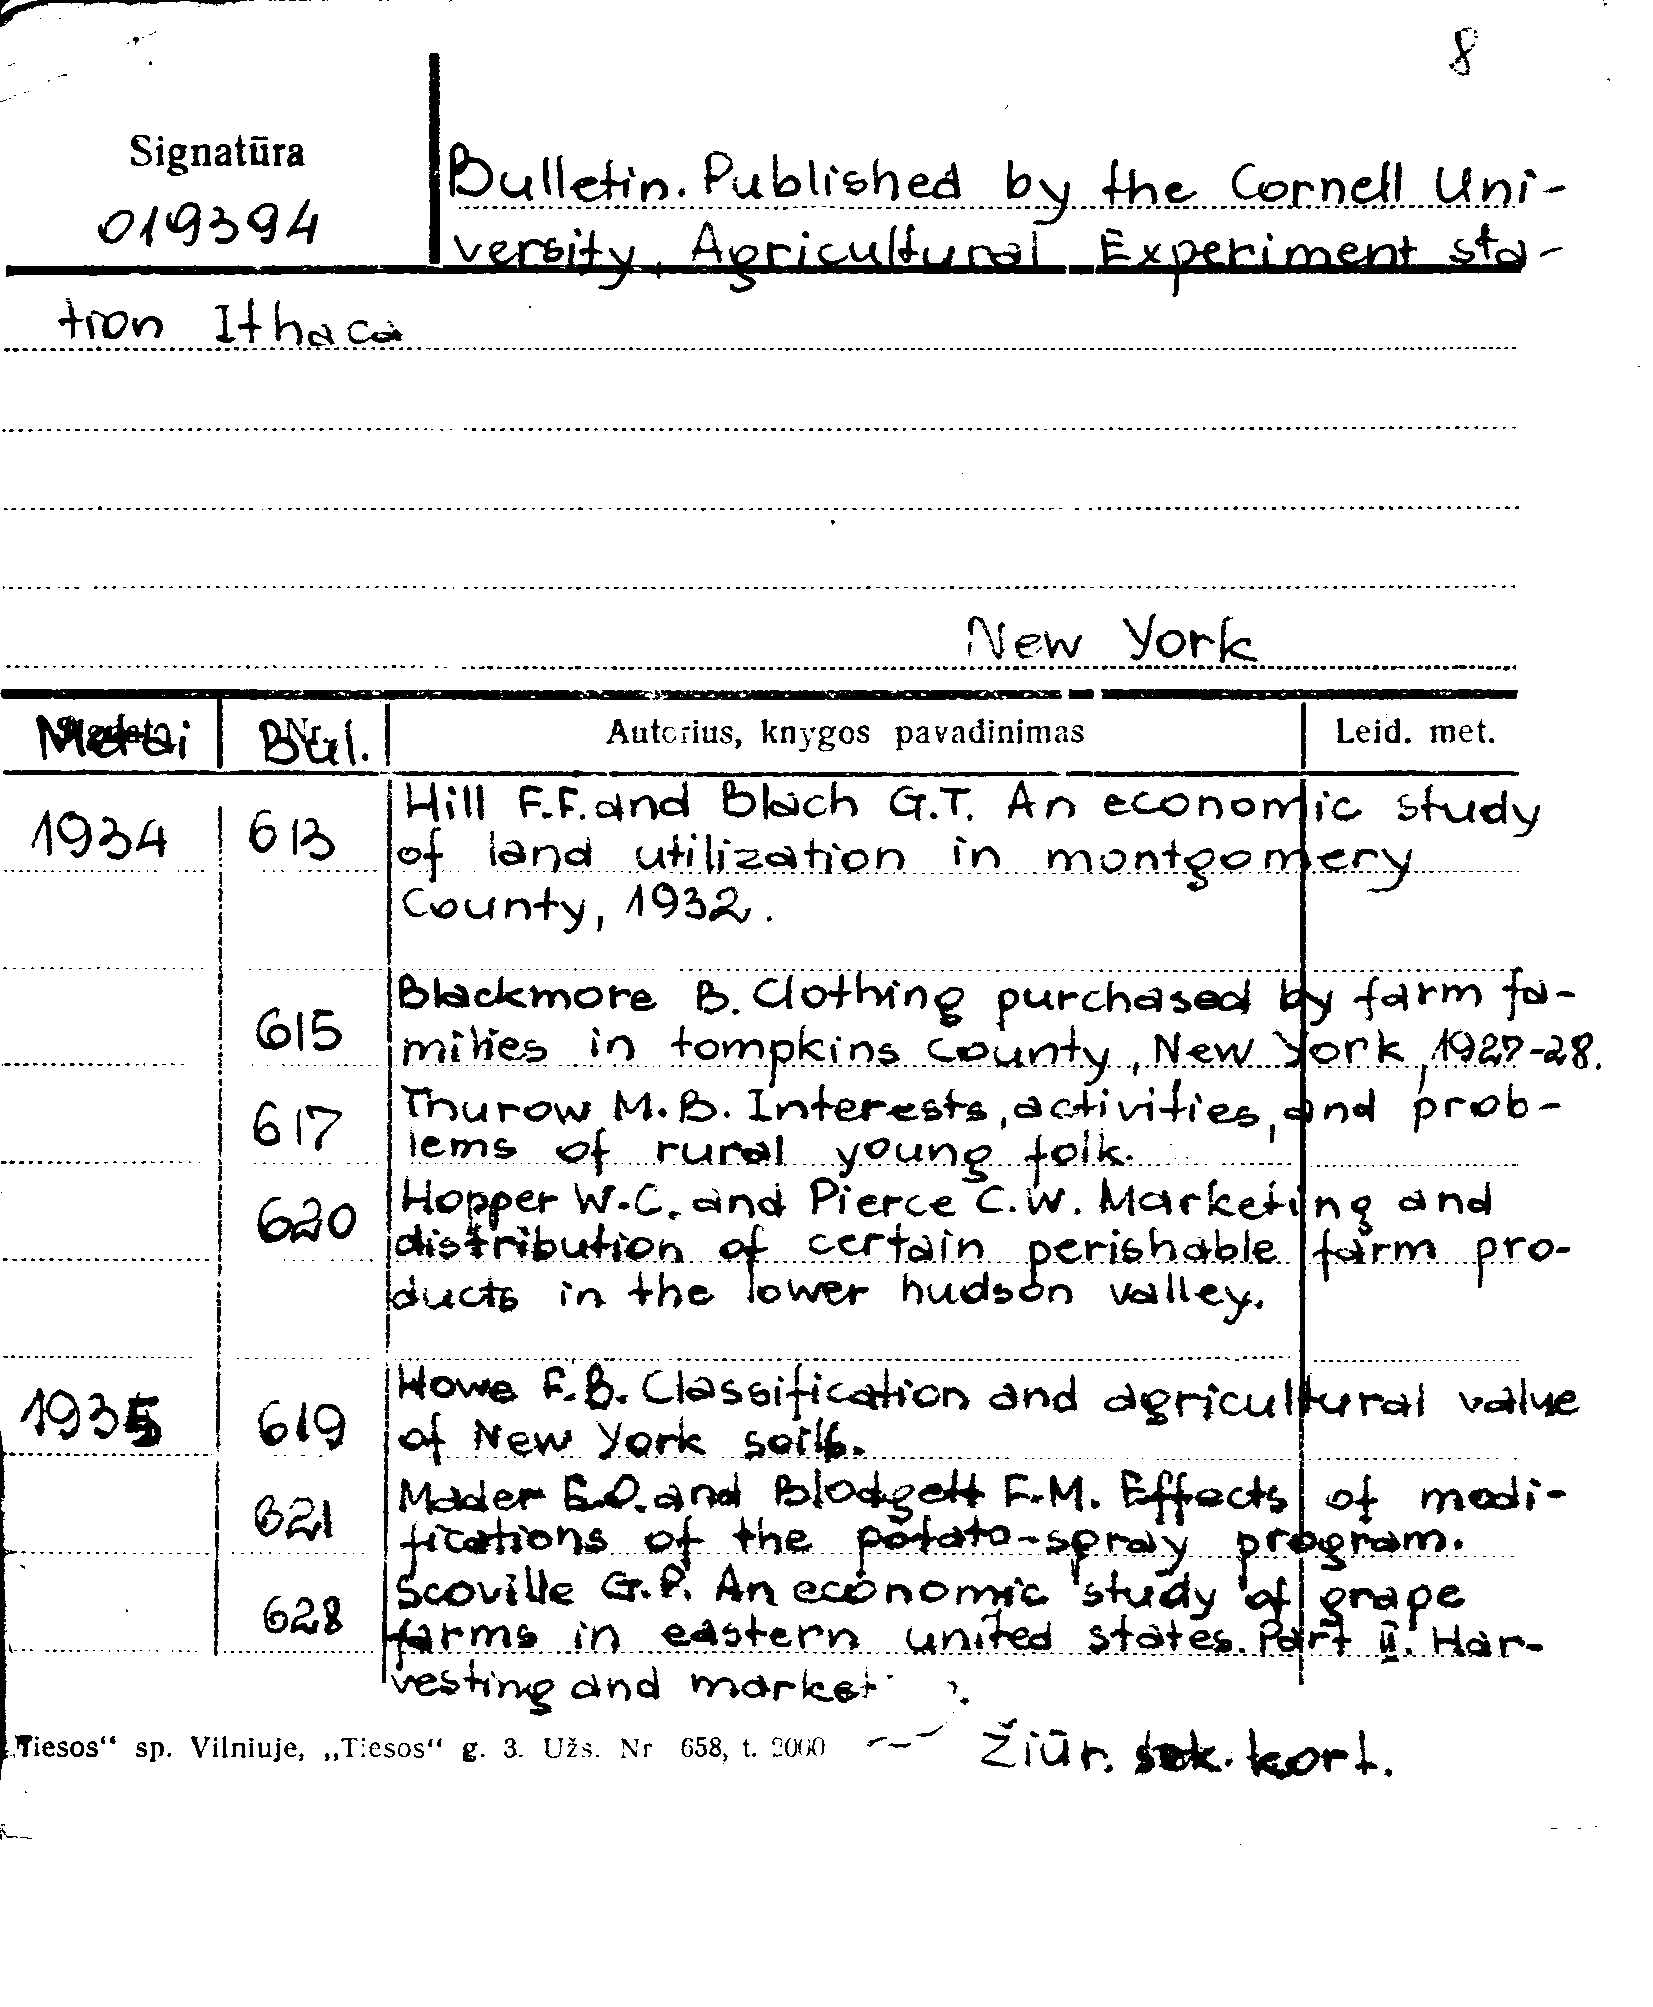 8
Signatūra
019394
Bulletin. Published by the Cornell Uni-
versity, Agricultural Experiment sta-
tion Ithaca
New York
Metai Bul. Autorius, knygos pavadinimas Leid. met.
1934 613 Hill F.F. and Blach G.T. An economic study
of land utilization in montgomery
County, 1932.
615 Blackmore B. Clothing purchased by farm fa-
milies in tompkins county, New York, 1927-28.
617 Thurow M.B. Interests, activities, and prob-
lems of rural young folk.
620 Hopper W.C. and Pierce C.W. Marketing and
distribution of certain perishable farm pro-
ducts in the lower hudson valley.
1935 619 Howe F.B. Classification and agricultural value
of New York soils.
621 Mader E.O. and Blodgett F.M. Effects of modi-
fications of the potato-spray program.
628 Scoville G.P. An economic study of grape
farms in eastern united states. Part II. Har-
vesting and market
„Tiesos“ sp. Vilniuje, „Tiesos“ g. 3. Užs. Nr 658, t. 2000
Žiūr. sek. kort.